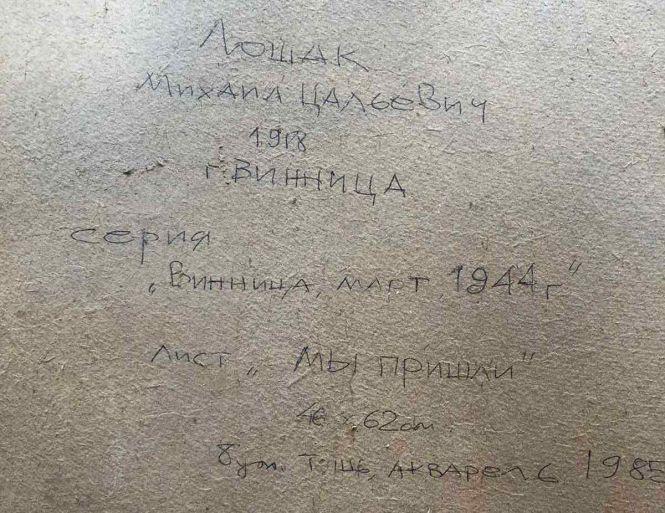 Лошак
Михаил Цальевич
1918
г. Винница
серия
„Винница, март 1944 г"
Лист „Мы пришли"
x 62 см
бум. тушь, акварель 1985